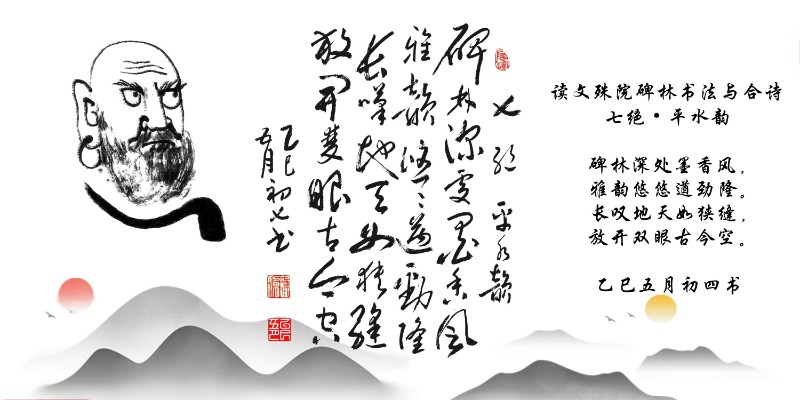 读文殊院碑林书法与合诗
七绝•平水韵
碑林深处墨香风，
雅韵悠悠道劲隆。
长叹地天如狭缝，
放开双眼古今空。
乙巳五月初四书
七絕 平水韻
碑林深處墨香風
雅韻悠〻道勁隆
長嘆地天如狹縫
放開雙眼古今空
乙巳
五月初七书